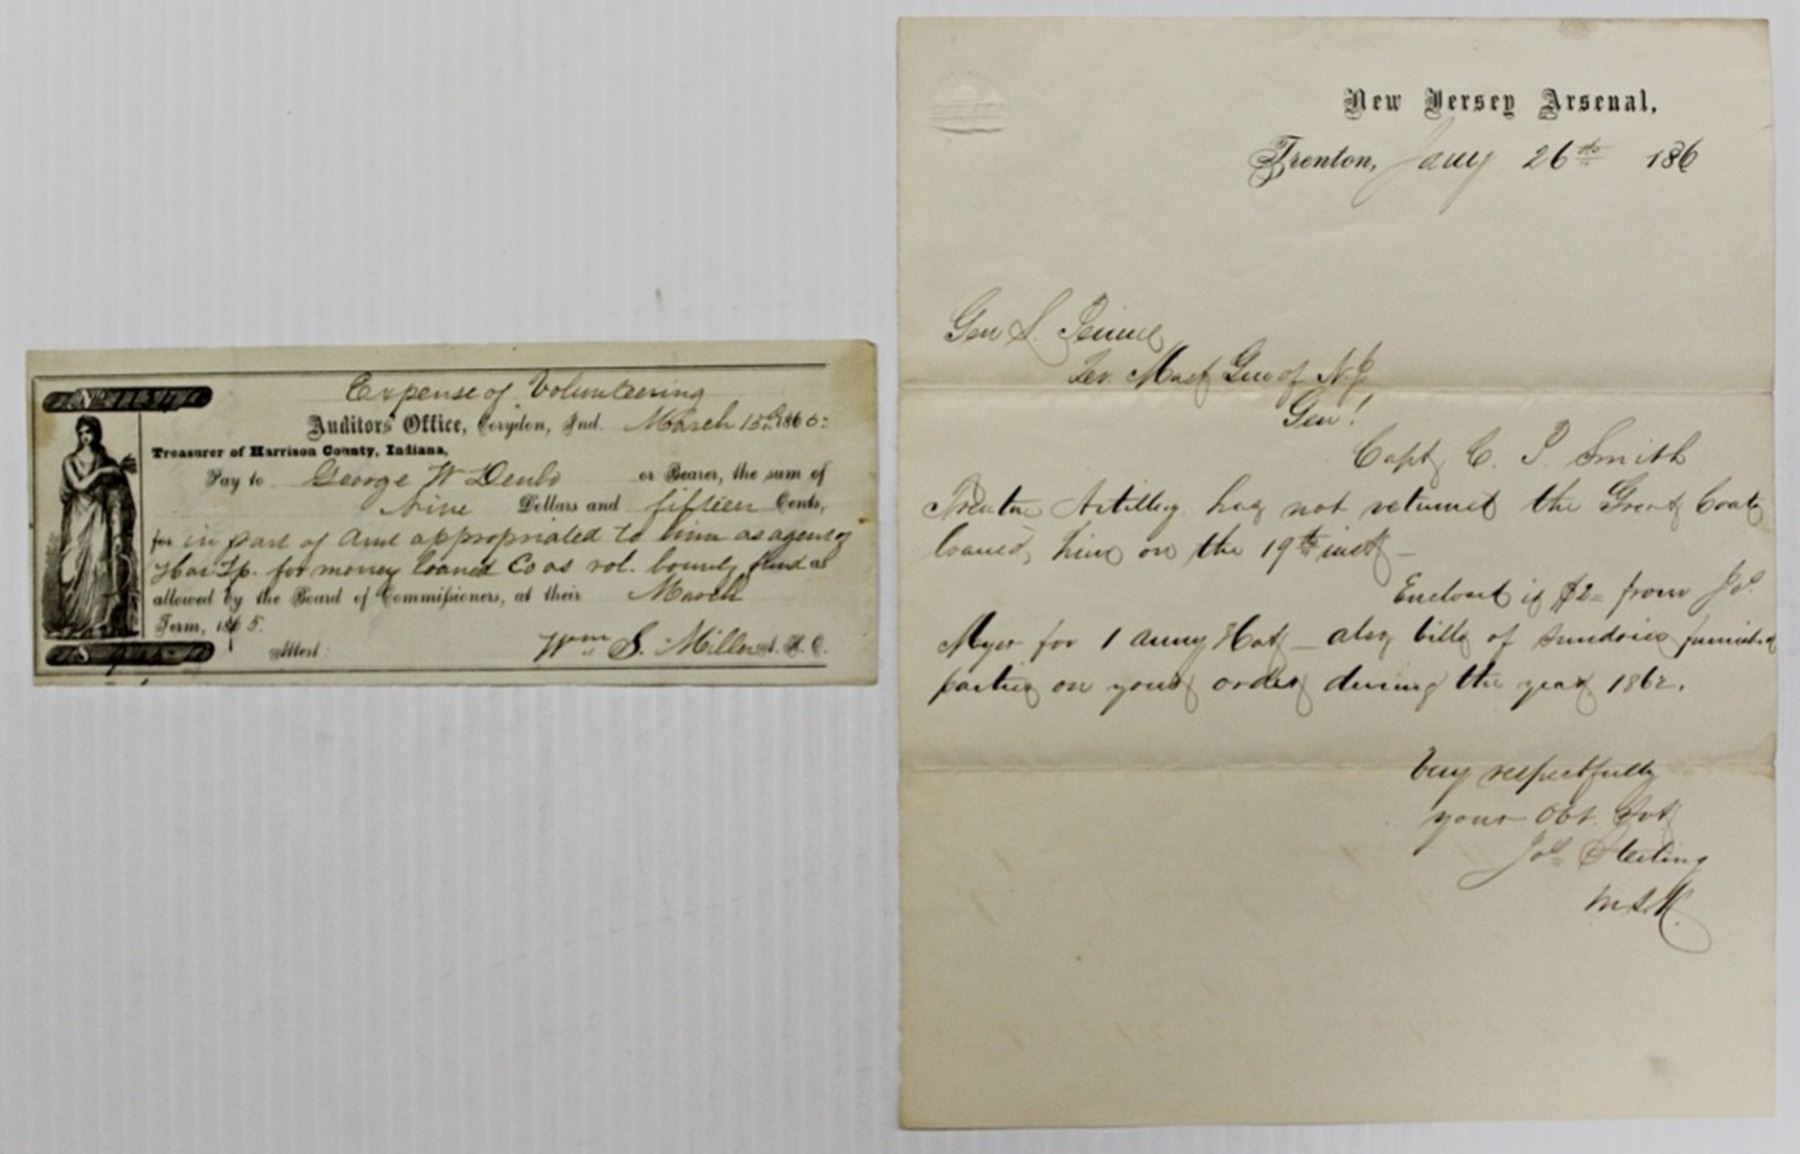 Expense of Volunteering
Auditors' Office, Corydon, Ind. March 1865
Treasurer of Harrison County, Indiana,
Pay to George W Denbo or Bearer, the sum of
Nine Dollars and fifteen Cents,
for in part of Amt appropriated to him as agent of
Har. Tp. for money loaned Co as vol. bounty fund as
allowed by the Board of Commissioners, at their March
Term, 1865.
Attest: Wm S. Miller A. H. C.
New Jersey Arsenal,
Trenton, Jany 26th 186
Gen
Mast Gen of N.J.
Gen!
Capt C. Smith
Trenton Artillery has not returned the Great Coats
loaned, him on the 19th inst —
Enclosed is $2= from Jos.
Myer for 1 army Hat — also bills of sundries furnished
parties on your order during the year 1862.
Very respectfully
your Obt. Svt
Jos Sterling
M.S.K.